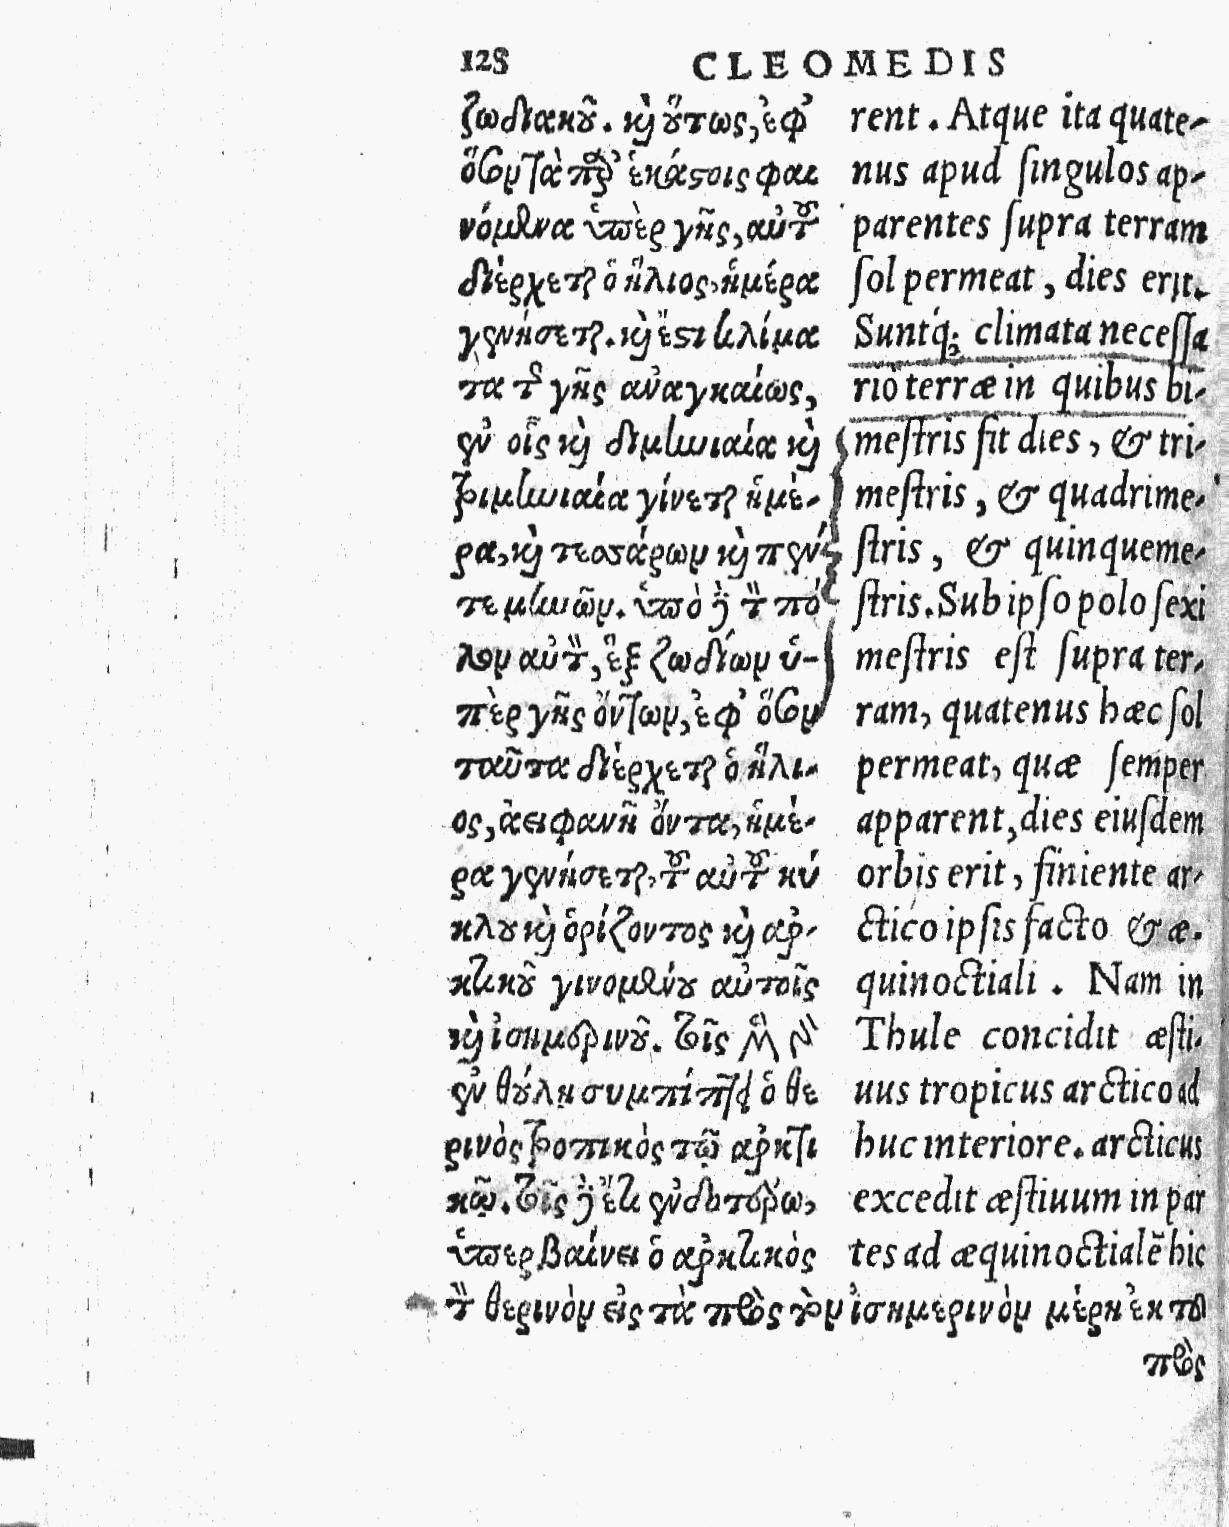 128 CLEOMEDIS
ζωδιακοῦ. καὶ οὕτως, ἐφ'
ὅσον τὰ παρ' ἑκάστοις φαι
νόμενα ὑπὲρ γῆς, αὐτοῦ
διέρχεται ὁ ἥλιος, ἡμέρα
γενήσεται. καὶ ἔστι κλίμα
τα τῆς γῆς ἀναγκαίως,
ἐν οἷς καὶ διμηνιαία καὶ
τριμηνιαία γίνεται ἡμέ-
ρα, καὶ τεσσάρων καὶ πέν
τε μηνῶν. ὑπὸ δὲ τὸν πό
λον αὐτὸν, ἓξ ζωδίων ὑ-
πὲρ γῆς ὄντων, ἐφ' ὅσον
ταῦτα διέρχεται ὁ ἥλι-
ος, ἀειφανῆ ὄντα, ἡμέ-
ρα γενήσεται, τοῦ αὐτοῦ κύ
κλου καὶ ὁρίζοντος καὶ ἀρ-
κτικοῦ γινομένου αὐτοῖς
καὶ ἰσημερινοῦ. τοῖς μὲν γὰρ
ἐν θούλῃ συμπίπτει ὁ θε
ρινὸς τροπικὸς τῷ ἀρκτι
κῷ. τοῖς δὲ ἔτι ἐνδοτέρω,
ὑπερβαίνει ὁ ἀρκτικὸς
τὸν θερινὸν εἰς τὰ πρὸς τὸν ἰσημερινὸν μέρη ἐκ τοῦ
πρὸς
rent. Atque ita quate-
nus apud singulos ap-
parentes supra terram
sol permeat, dies erit.
Suntq́; climata necessa
riò terræ in quibus bi-
mestris fit dies, & tri-
mestris, & quadrime-
stris, & quinqueme-
stris. Sub ipso polo sexi
mestris est supra ter-
ram, quatenus hæc sol
permeat, quæ semper
apparent, dies eiusdem
orbis erit, finiente ar-
ctico ipsis facto & æ-
quinoctiali. Nam in
Thule concidit æsti-
uus tropicus arctico ad
huc interiore. arcticus
excedit æstiuum in par
tes ad æquinoctialē hic